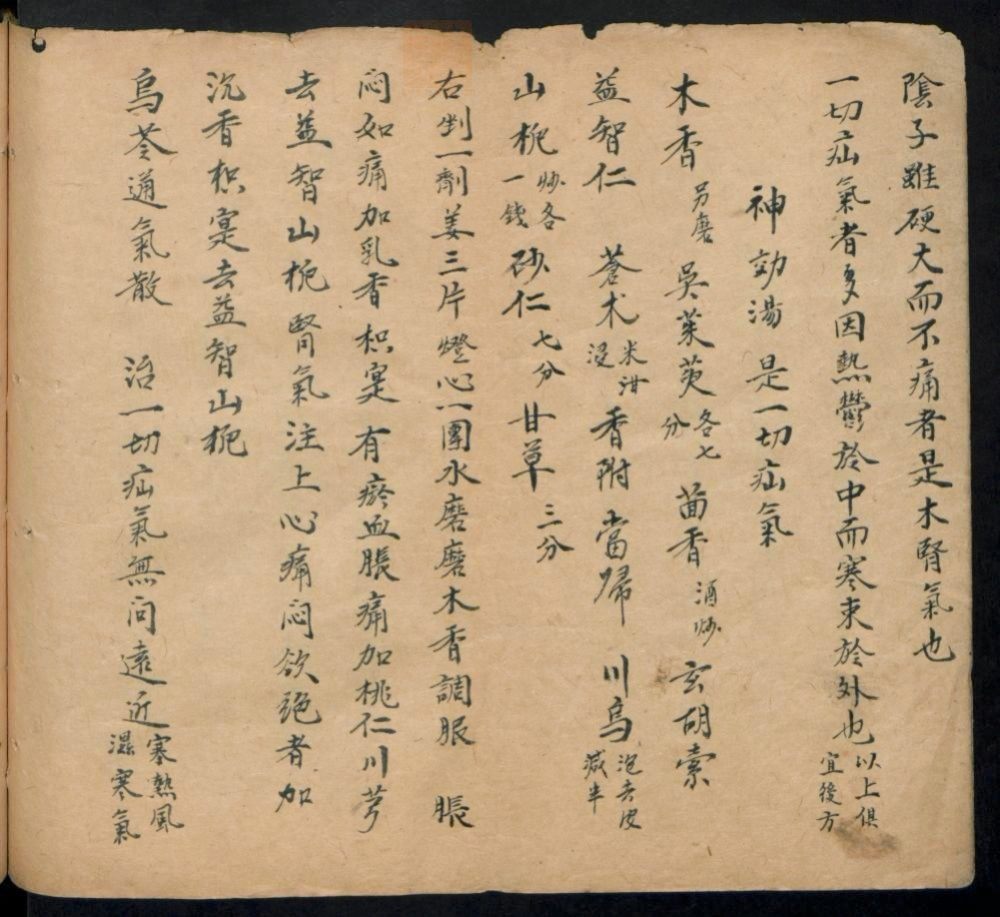 陰子雖硬大而不痛者是木腎氣也
一切疝氣者多因熱鬱於中而寒束於外也以上俱宜後方
神効湯 是一切疝氣
木香另磨 吳茱萸各七分 茴香酒炒 玄胡索
益智仁 蒼朮米泔浸 香附 當歸 川烏泡去皮减半
山梔炒各一錢 砂仁七分 甘草三分
右剉一劑姜三片燈心一團水磨磨木香調服 脹
悶如痛加乳香枳寔 有瘀血脹痛加桃仁川芎
去益智山梔腎氣注上心痛悶欲绝者加
沉香枳寔去益智山梔
烏苓通氣散 治一切疝氣無问遠近寒熱風濕寒氣